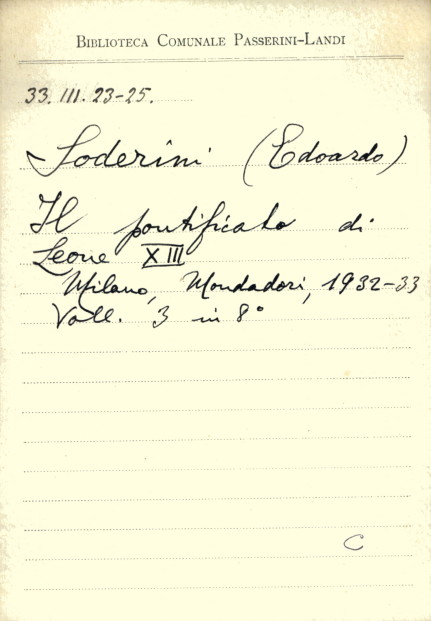 BIBLIOTECA COMUNALE PASSERINI-LANDI
33. III. 23-25.
Soderini (Edoardo)
Il pontificato di
Leone XIII
Milano, Mondadori, 1932-33
Voll. 3 in 8°
C